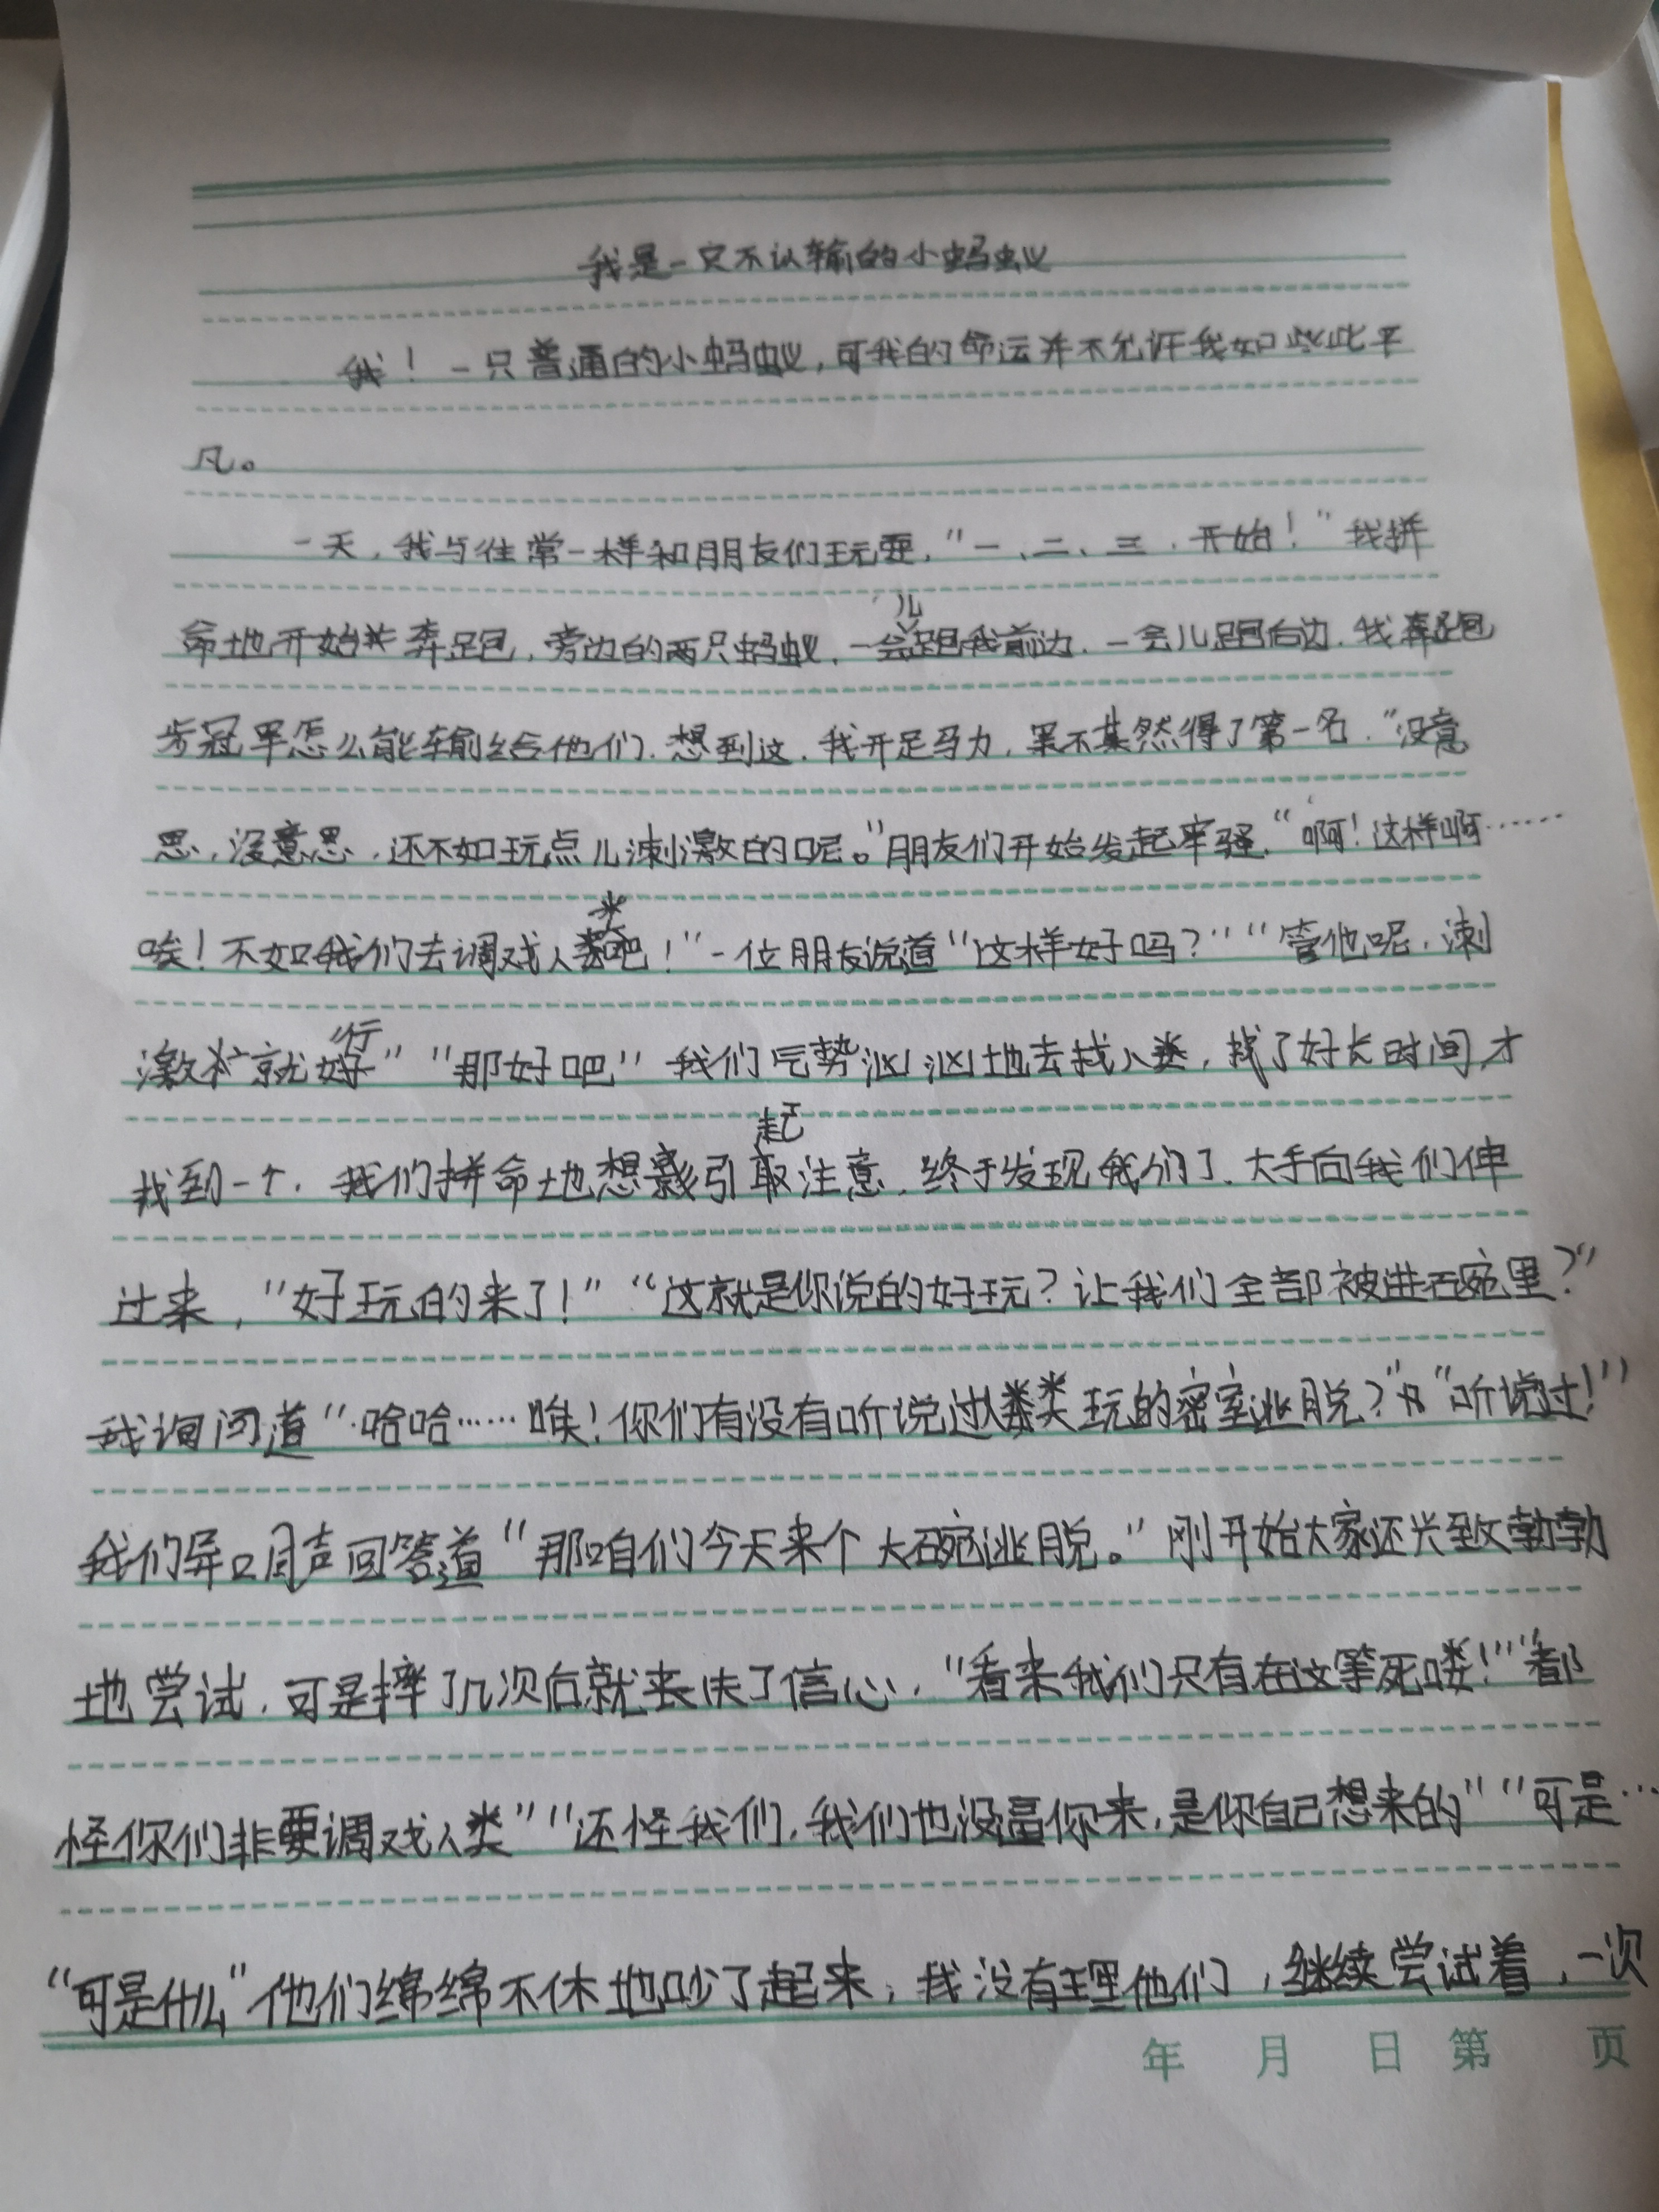 我是一只不认输的小蚂蚁
我！一只普通的小蚂蚁，可我的命运并不允许我如此平
凡。
一天，我与往常一样和朋友们玩耍，“一、二、三，开始！”我拼
命地开始奔跑，旁边的两只蚂蚁，一会儿跑我前边，一会儿跑后边，我奔跑
步冠军怎么能输给他们，想到这，我开足马力，果不其然得了第一名，“没意
思，没意思，还不如玩点儿刺激的呢。”朋友们开始发起牢骚，“啊！这样啊……
唉！不如我们去调戏人类吧！”一位朋友说道“这样好吗？”“管他呢，刺
激就行”“那好吧”我们气势汹汹地去找人类，找了好长时间，才
找到一个，我们拼命地想引起注意，终于发现我们了，大手向我们伸
过来，“好玩的来了！”“这就是你说的好玩？让我们全部被进碗里？”
我询问道“哈哈……唉！你们有没有听说过人类玩的密室逃脱？”“听说过！”
我们异口同声回答道“那咱们今天来个大碗逃脱。”刚开始大家还兴致勃勃
地尝试，可是摔了几次后就丧失了信心，“看来我们只有在这等死喽！”“都
怪你们非要调戏人类”“还怪我们，我们也没逼你来，是你自己想来的”“可是…
“可是什么”他们绵绵不休地吵了起来，我没有理他们，继续尝试着，一次
年 月 日 第 页